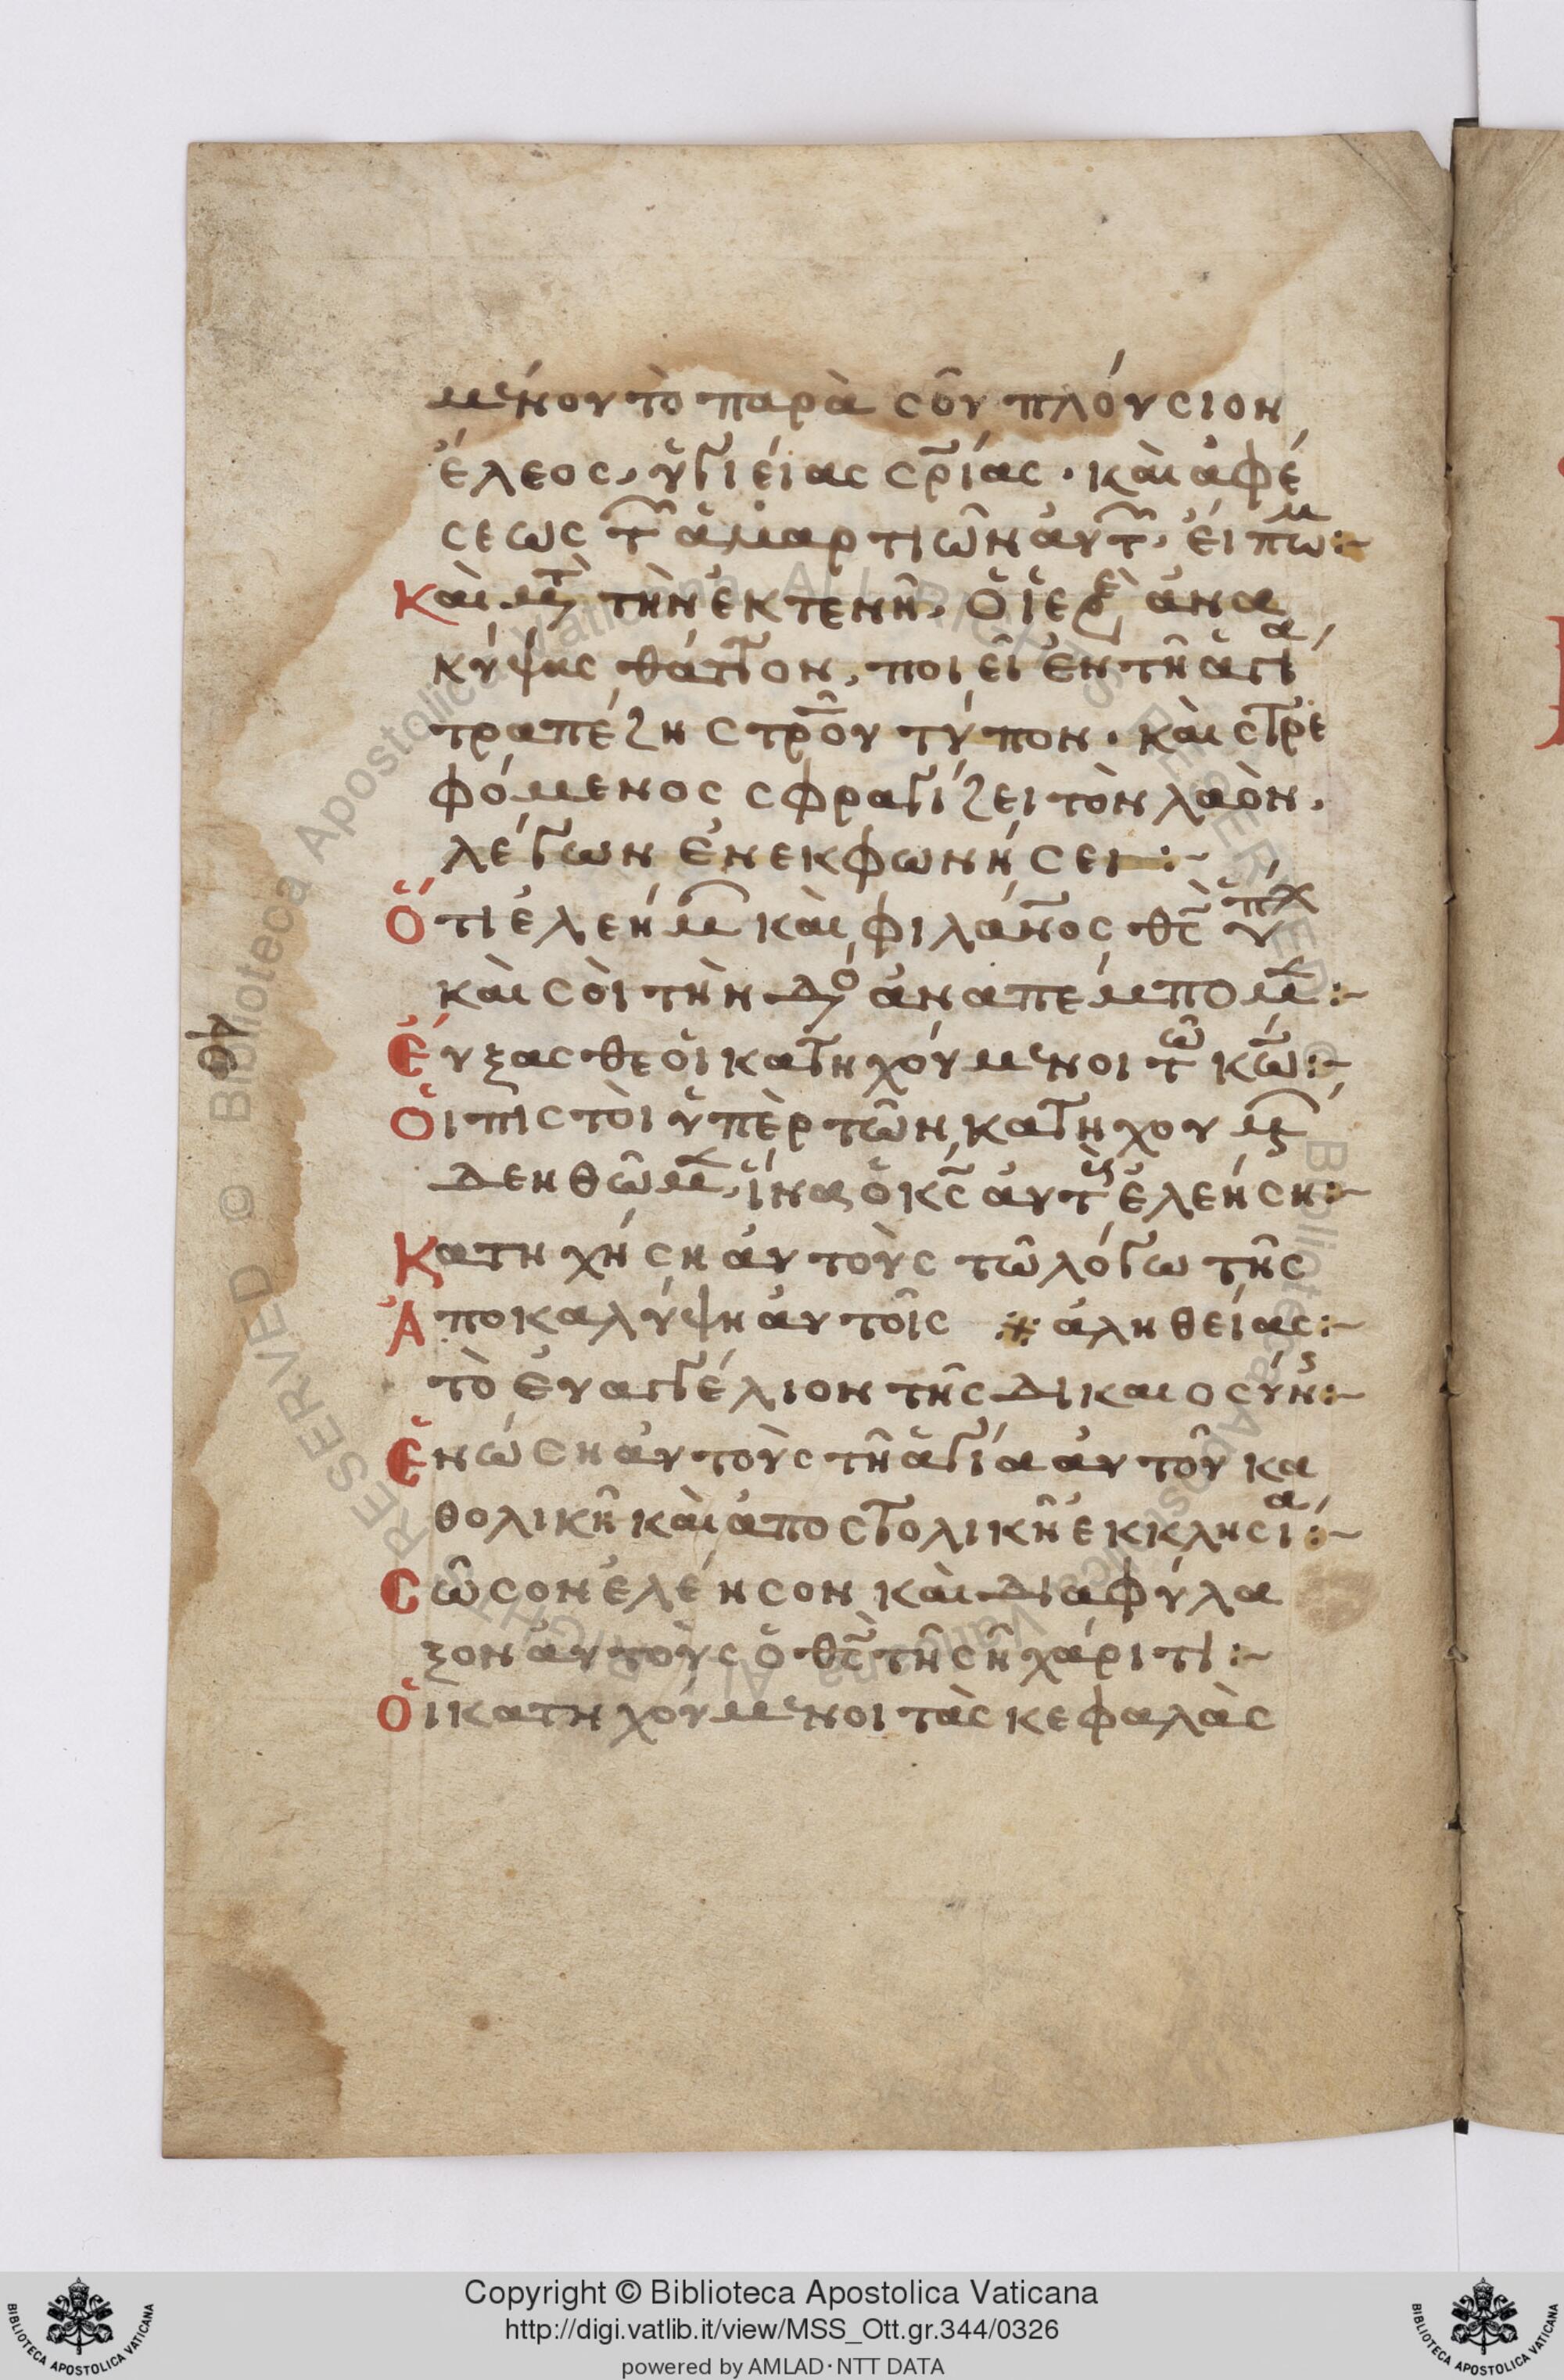 μένου τὸ παρὰ σοῦ πλούσιον
ἔλεος, ὑγιείας σρίας· καὶ ἀφέ
σεως τ ἁμαρτιῶν αὐτ, εἴπωμ:~
Καὶ μετ τὴν ἐκτενῆ, ὁ ἱερε ἀνα
κύψας θάττον, ποιεῖ ἐν τῆ ἁγία
τραπέζη στροῦ τύπον· καὶ στρε
φόμενος σφραγίζει τὸν λαὸν,
λέγων ἐν ἐκφωνήσει:~
Ὅτι ἐλεήμ καὶ φιλανος θς ὑπχ
καὶ σοὶ τὴν δο ἀναπέμπομ:~
Εὔξασθε οἱ κατηχούμενοι τῶ κω:~
Οἱ πιστοὶ ὑπὲρ τῶν κατηχουμ
δεηθῶμ, ἵνα ὁ κς αὐτς ἐλεήση:~
Κατηχήση αὐτοὺς τῶ λόγω τῆς
Ἀποκαλύψη αὐτοῖς ※ ἀληθείας:~
τὸ εὐαγγέλιον τῆς δικαιοσύνς:~
Ἑνώση αὐτοὺς τῆ ἁγία αὐτοῦ κα
θολικῆ καὶ ἀποστολικῆ ἐκκλησία:~
Σῶσον ἐλέησον καὶ διαφύλα
ξον αὐτοὺς ὁ θς τῆ σῆ χάριτι:~
Οἱ κατηχούμενοι τὰς κεφαλὰς
Copyright © Biblioteca Apostolica Vaticana
http://digi.vatlib.it/view/MSS_Ott.gr.344/0326
powered by AMLAD·NTT DATA
BIBLIOTECA APOSTOLICA VATICANA
BIBLIOTECA APOSTOLICA VATICANA